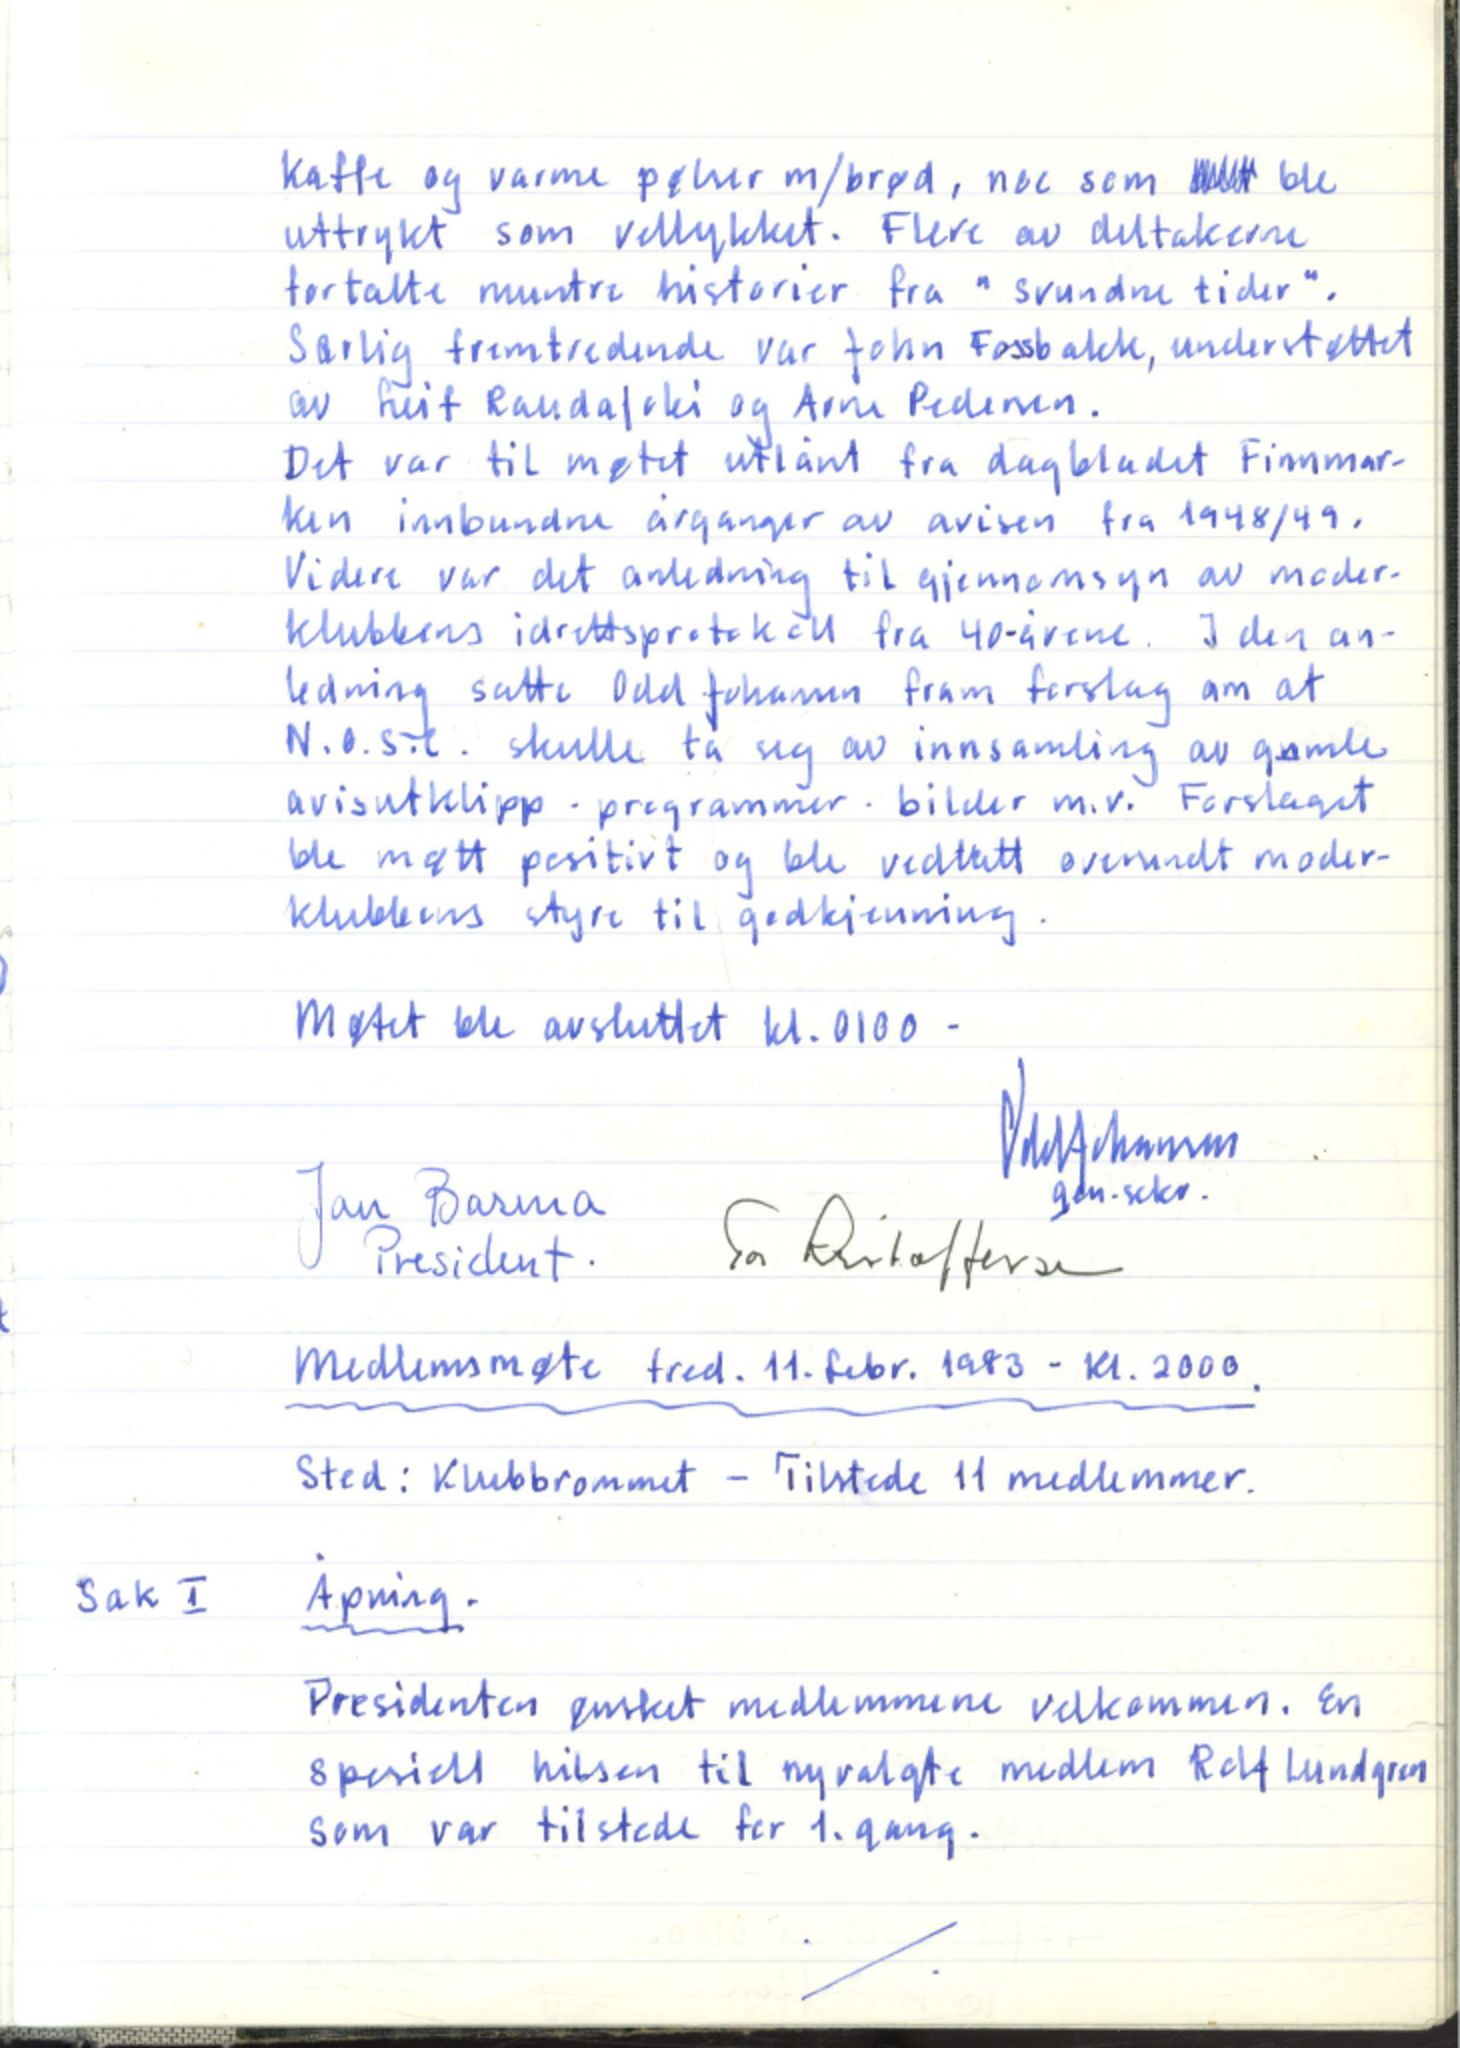 Kaffe og varme pølser m/brød, noe som ble
uttrykt som vellykket. Flere av deltakerne
fortalte muntre historier fra "svundne tider".
Særlig fremtredende var John Fossbakk, understøttet
av Leif Randa og Arne Pedersen.
Det var til møtet utlånt fra dagbladet Finnmar-
ken innbundne årganger av avisen fra 1948/49.
Videre var det anledning til gjennomsyn av moder-
klubbens idrettsprotokoll fra 40-årene. I den an-
ledning satte Odd Johansen fram forslag om at
N.O.S.C. skulle ta seg av innsamling av gamle
avisutklipp - programmer - bilder m.v. Forslaget
ble møtt positivt og ble vedtatt oversendt moder-
klubbens styre til godkjenning.
Møtet ble avsluttet kl. 0100 -
Odd Johansen
gen.sekr.
Jan Basma
President.
Tor Kristoffersen
Medlemsmøte fred. 11. febr. 1983 - Kl. 2000.
Sted: Klubbrommet - Tilstede 11 medlemmer.
Sak I Åpning.
Presidenten ønsket medlemmene velkommen. En
spesiell hilsen til nyvalgte medlem Rolf Lundgren
som var tilstede for 1. gang.